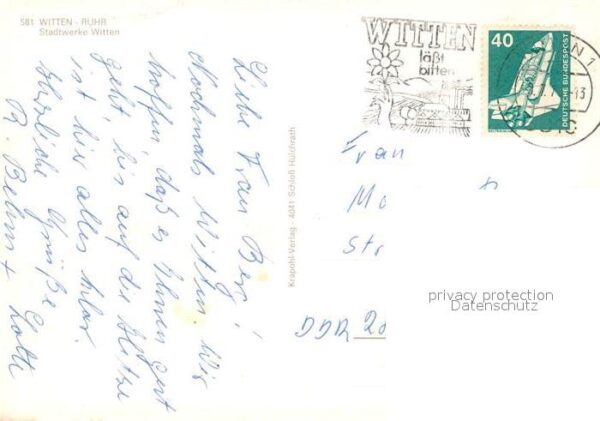 581 WITTEN - RUHR
Stadtwerke Witten
Liebe Frau Ber !
Nochmals Witten. Wir
hoffen, daß es Ihnen gut
geht, bis auf die Hitze
ist hier alles klar.
Herzliche Grüße
R. Behns + Lotte
Krapohl-Verlag - 4041 Schloß Hülchrath
WITTEN
läßt
bitten
40
DEUTSCHE BUNDESPOST
Frau
DDR
privacy protection
Datenschutz